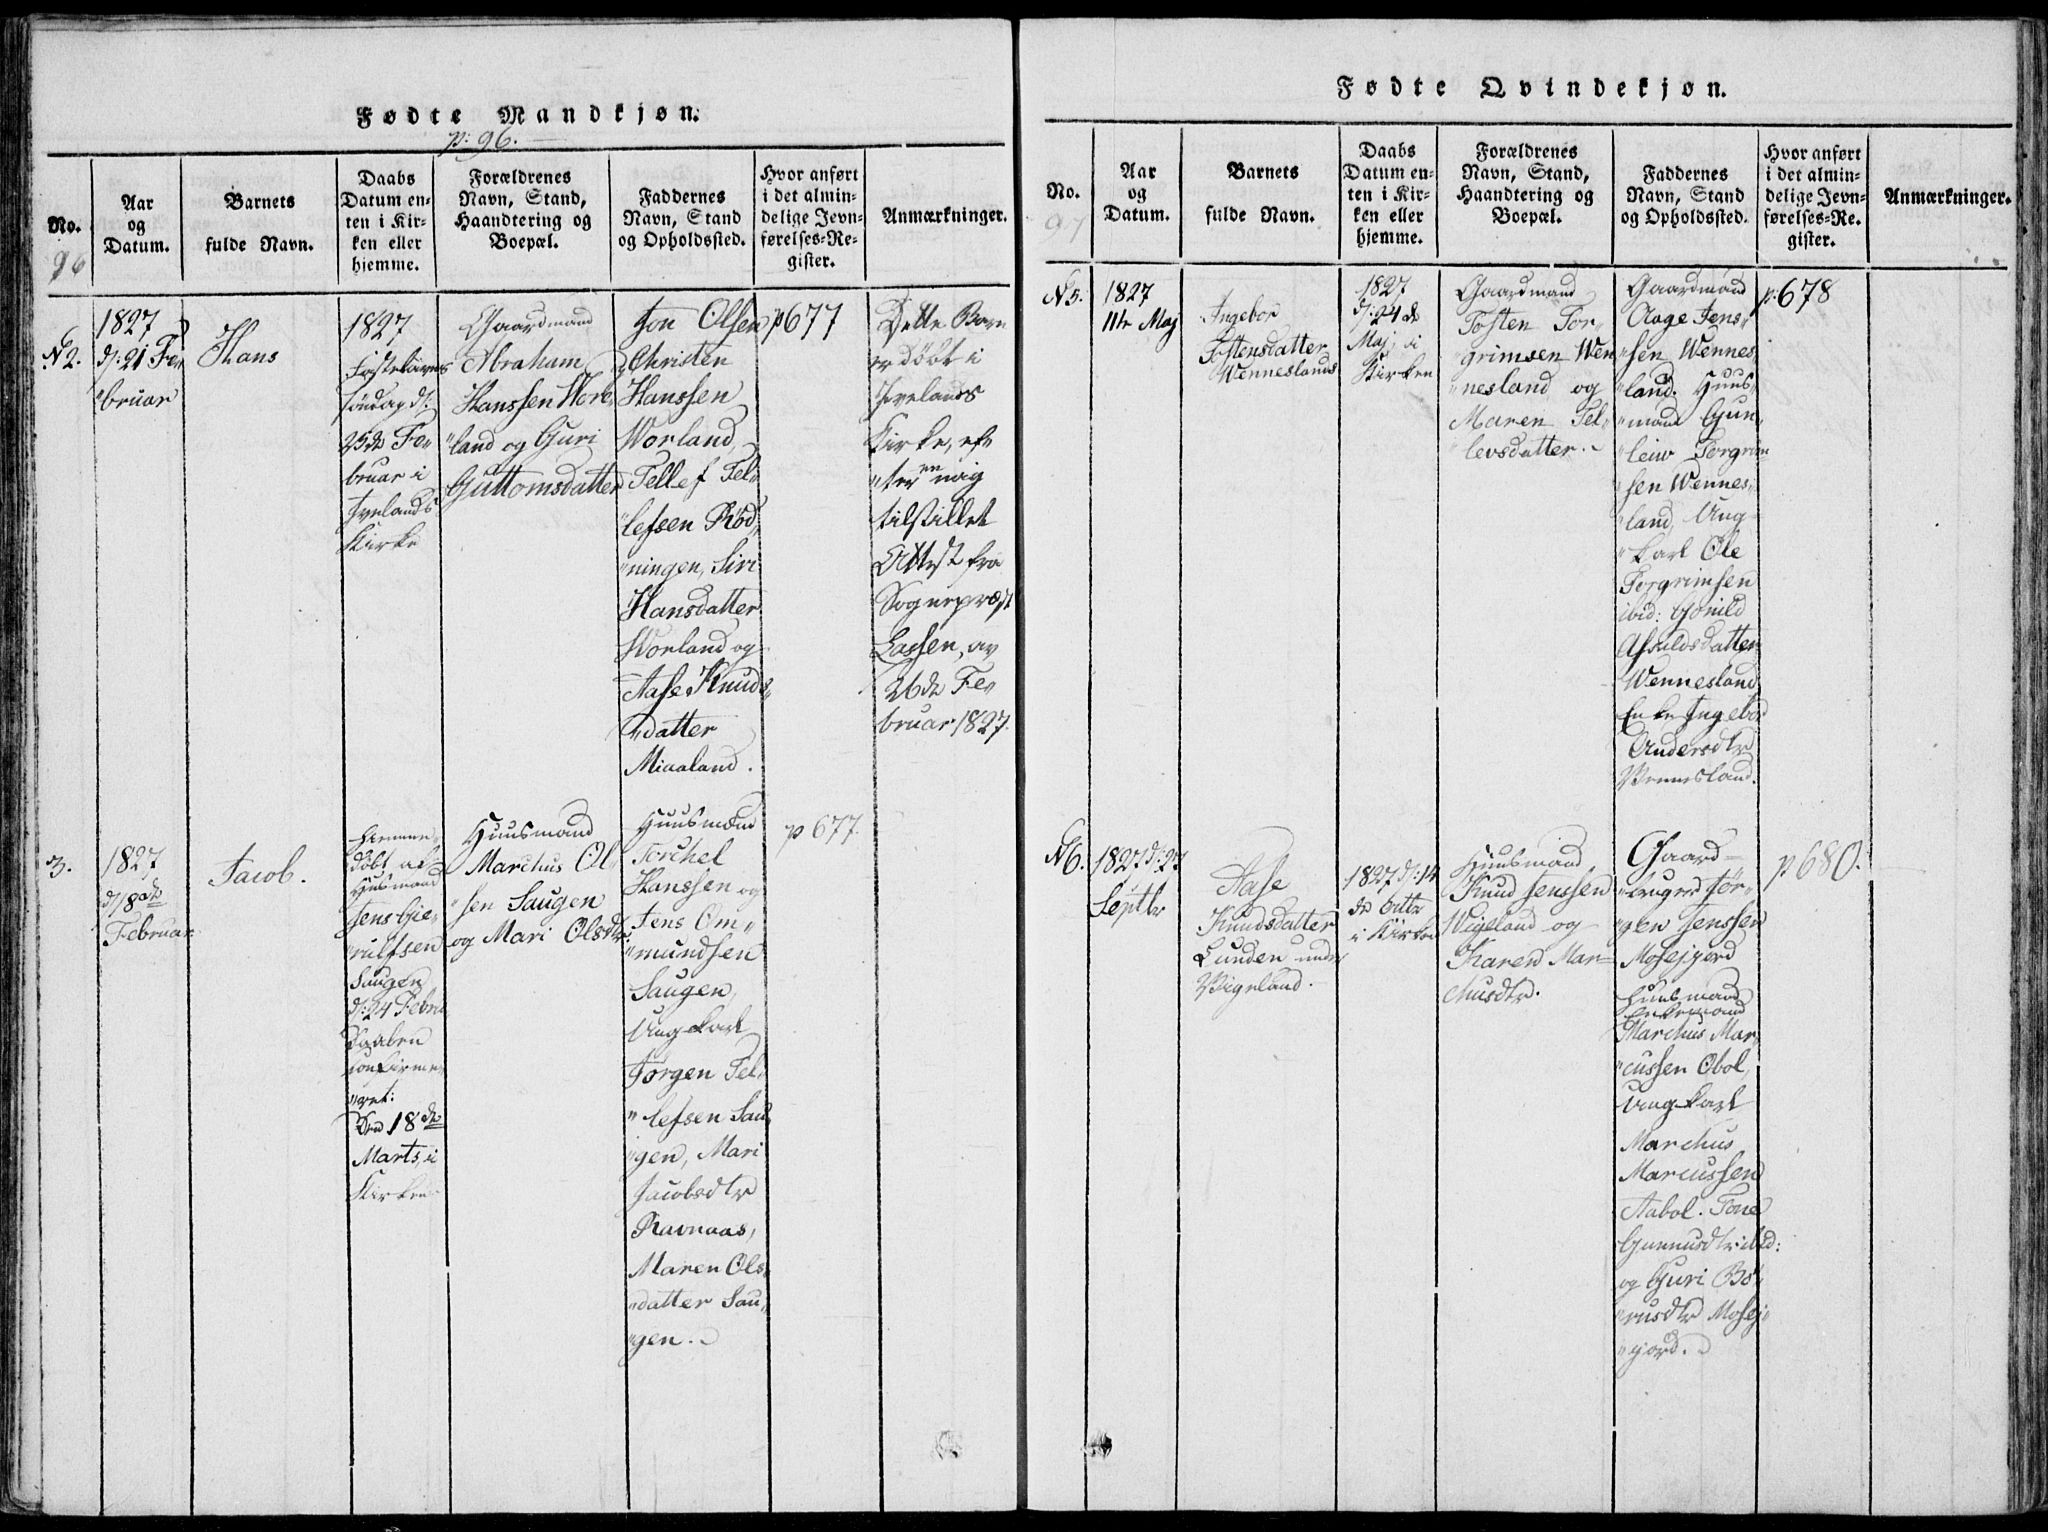 Fødte Mandkjøn.
p: 96.
No.
96
Aar
og
Datum.
Barnets
fulde Navn.
Daabs
Datum en-
ten i Kir-
ken eller
hjemme.
Forældrenes
Navn, Stand,
Haandtering og
Boepæl.
Faddernes
Navn, Stand
og Opholdssted.
Hvor anført
i det almin-
delige Jevn-
førelses-Re-
gister.
Anmærkninger.
N 2.
1827
d: 21 Fe-
bruar
Hans
1827
Fastelavns
Søndag d:
25de Fe-
bruar i
Ivelands
Kirke
Gaardmand
Abraham
Hanssen Wor-
land og Guri
Guttomsdatter
Jon Olsen
Christen
Hanssen
Worland,
Tellef Tel-
lefsen Rød-
ningen, Siri
Hansdatter
Worland og
Aase Knuds-
datter
Miaaland.
p 677
Dette Barn
er døbt i
Ivelands
Kirke, ef-
ter en mig
tilstillet
Attest fra
Sognepræst
Lassen, av
26de Fe-
bruar 1827.
3.
1827
d 18de
Februar
Jacob.
Hjemme-
døbt af
Huusmand
Jens Gie-
rulfsen
Saugen
d: 24 Febru
Daaben
confirme-
ret:
Den 18de
Marts, i
Kirken
Huusmand
Marchus Ol-
sen Saugen
og Mari Olsdtr:
Huusmænd
Torchel
Hanssen og
Jens Om-
mundsen
Saugen,
Ungkarl
Jørgen Tel-
lefsen Sau-
gen, Mari
Jacobsdtr
Ravnaas,
Maren Ols-
datter Sau-
gen.
p 677.
Fødte Qvindekjøn.
No.
97
Aar
og
Datum.
Barnets
fulde Navn.
Daabs
Datum en-
ten i Kir-
ken eller
hjemme.
Forældrenes
Navn, Stand,
Haandtering og
Boepæl.
Faddernes
Navn, Stand
og Opholdssted.
Hvor anført
i det almin-
delige Jevn-
førelses-Re-
gister.
Anmærkninger.
N 5.
1827
11te Maj
Ingebor
Tostensdatter
Wenneslands
1827
d: 24de
Maj, i
Kirken
Gaardmand
Tosten Tor-
grimsen Wen-
nesland og
Maren Tel-
levsdatter.
Gaardmand
Aage Jens-
sen Wennes-
land. Huus-
mand Gun-
leiv Torgrim
sen Wennes-
land, Ung-
karl Ole
Torgrimsen
ibid: Gonild
Aslildsdatter
Wennesland
Enke Ingebor
Andersdtr
Wennesland.
p: 678
N 6.
1827 d: 27
Septbr
Aase
Knudsdatter
Lunden under
Wigeland.
1827 d: 14
de Octbr
i Kirken
Huusmand
Knud Jenssen
Wigeland og
Karen Mar-
chusdtr.
Gaard-
bruger Jør-
gen Jenssen
Mosejord
Huusmand
Enkemand
Marchus Mar-
cussen Obol,
Ungkarl
Marchus
Marcussen
Aabol. Tone
Gunnusdtr ibid:
og Guri Bø-
rusdtr Mosej-
gjord.
p 680.